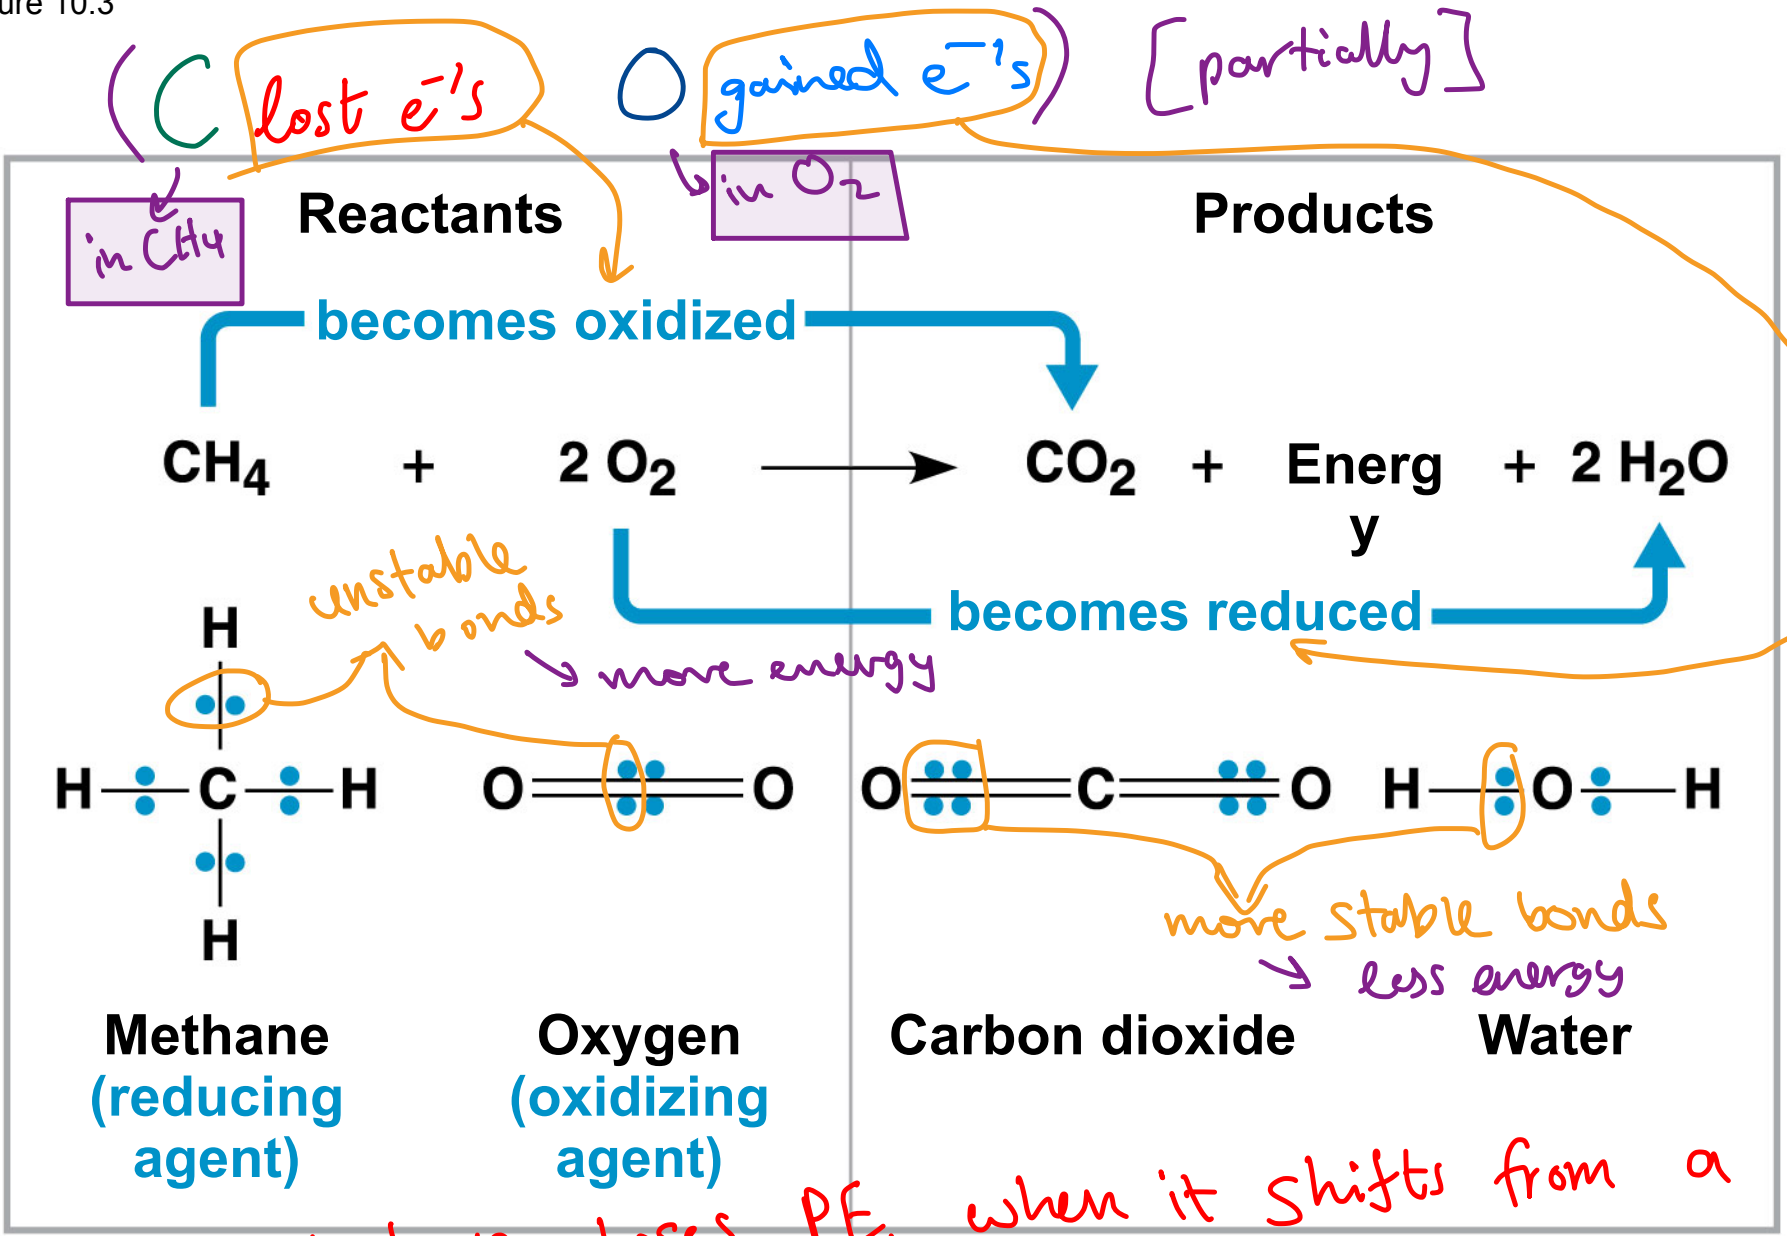 ure 10.3
(C lost e⁻'s O gained e⁻'s) [partially]
in CH4
in O2
Reactants
Products
becomes oxidized
CH4 + 2 O2 → CO2 + Energ + 2 H2O
y
unstable
bonds
becomes reduced
more energy
H
H C H
H
O O
O C O
H O H
more stable bonds
less energy
Methane
(reducing
agent)
Oxygen
(oxidizing
agent)
Carbon dioxide
Water
loses PE when it shifts from a